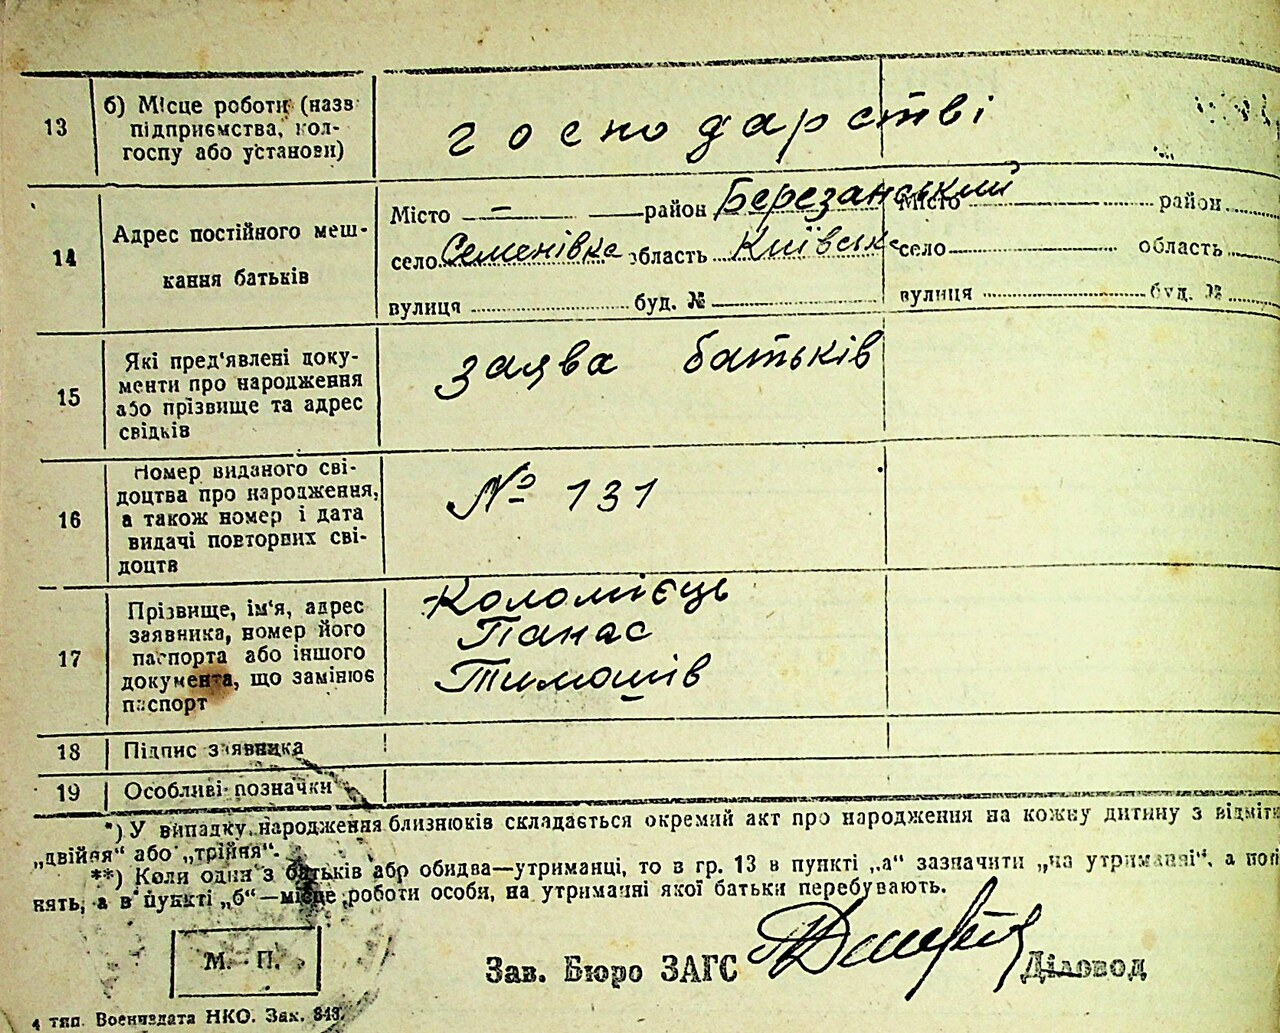 13
б) Місце роботи (назв
підприємства, кол-
госпу або установи)
господарстві
14
Адрес постійного меш-
кання батьків
Місто — район Березанський
село Семенівка область Київська
вулиця буд. №
Місто район
село область
вулиця буд. №
15
Які пред'явлені доку-
менти про народження
або прізвище та адрес
свідків
заява батьків
16
Номер виданого сві-
доцтва про народження,
а також номер і дата
видачі повторних сві-
доцтв
№ 131
17
Прізвище, ім'я, адрес
заявника, номер його
паспорта або іншого
документа, що замінює
паспорт
Коломієць
Панас
Тимошів
18
Підпис заявника
19
Особливі позначки
*) У випадку народження близнюків складається окремий акт про народження на кожну дитину з відміт
„двійня“ або „трійня“.
**) Коли один з батьків або обидва—утриманці, то в гр. 13 в пункті „а“ зазначити „на утриманні“, а пон
нять, а в пункті „б“—місце роботи особи, на утриманні якої батьки перебувають.
М. П.
Зав. Бюро ЗАГС
Діловод
4 тип. Воениздата НКО. Зак. 843.